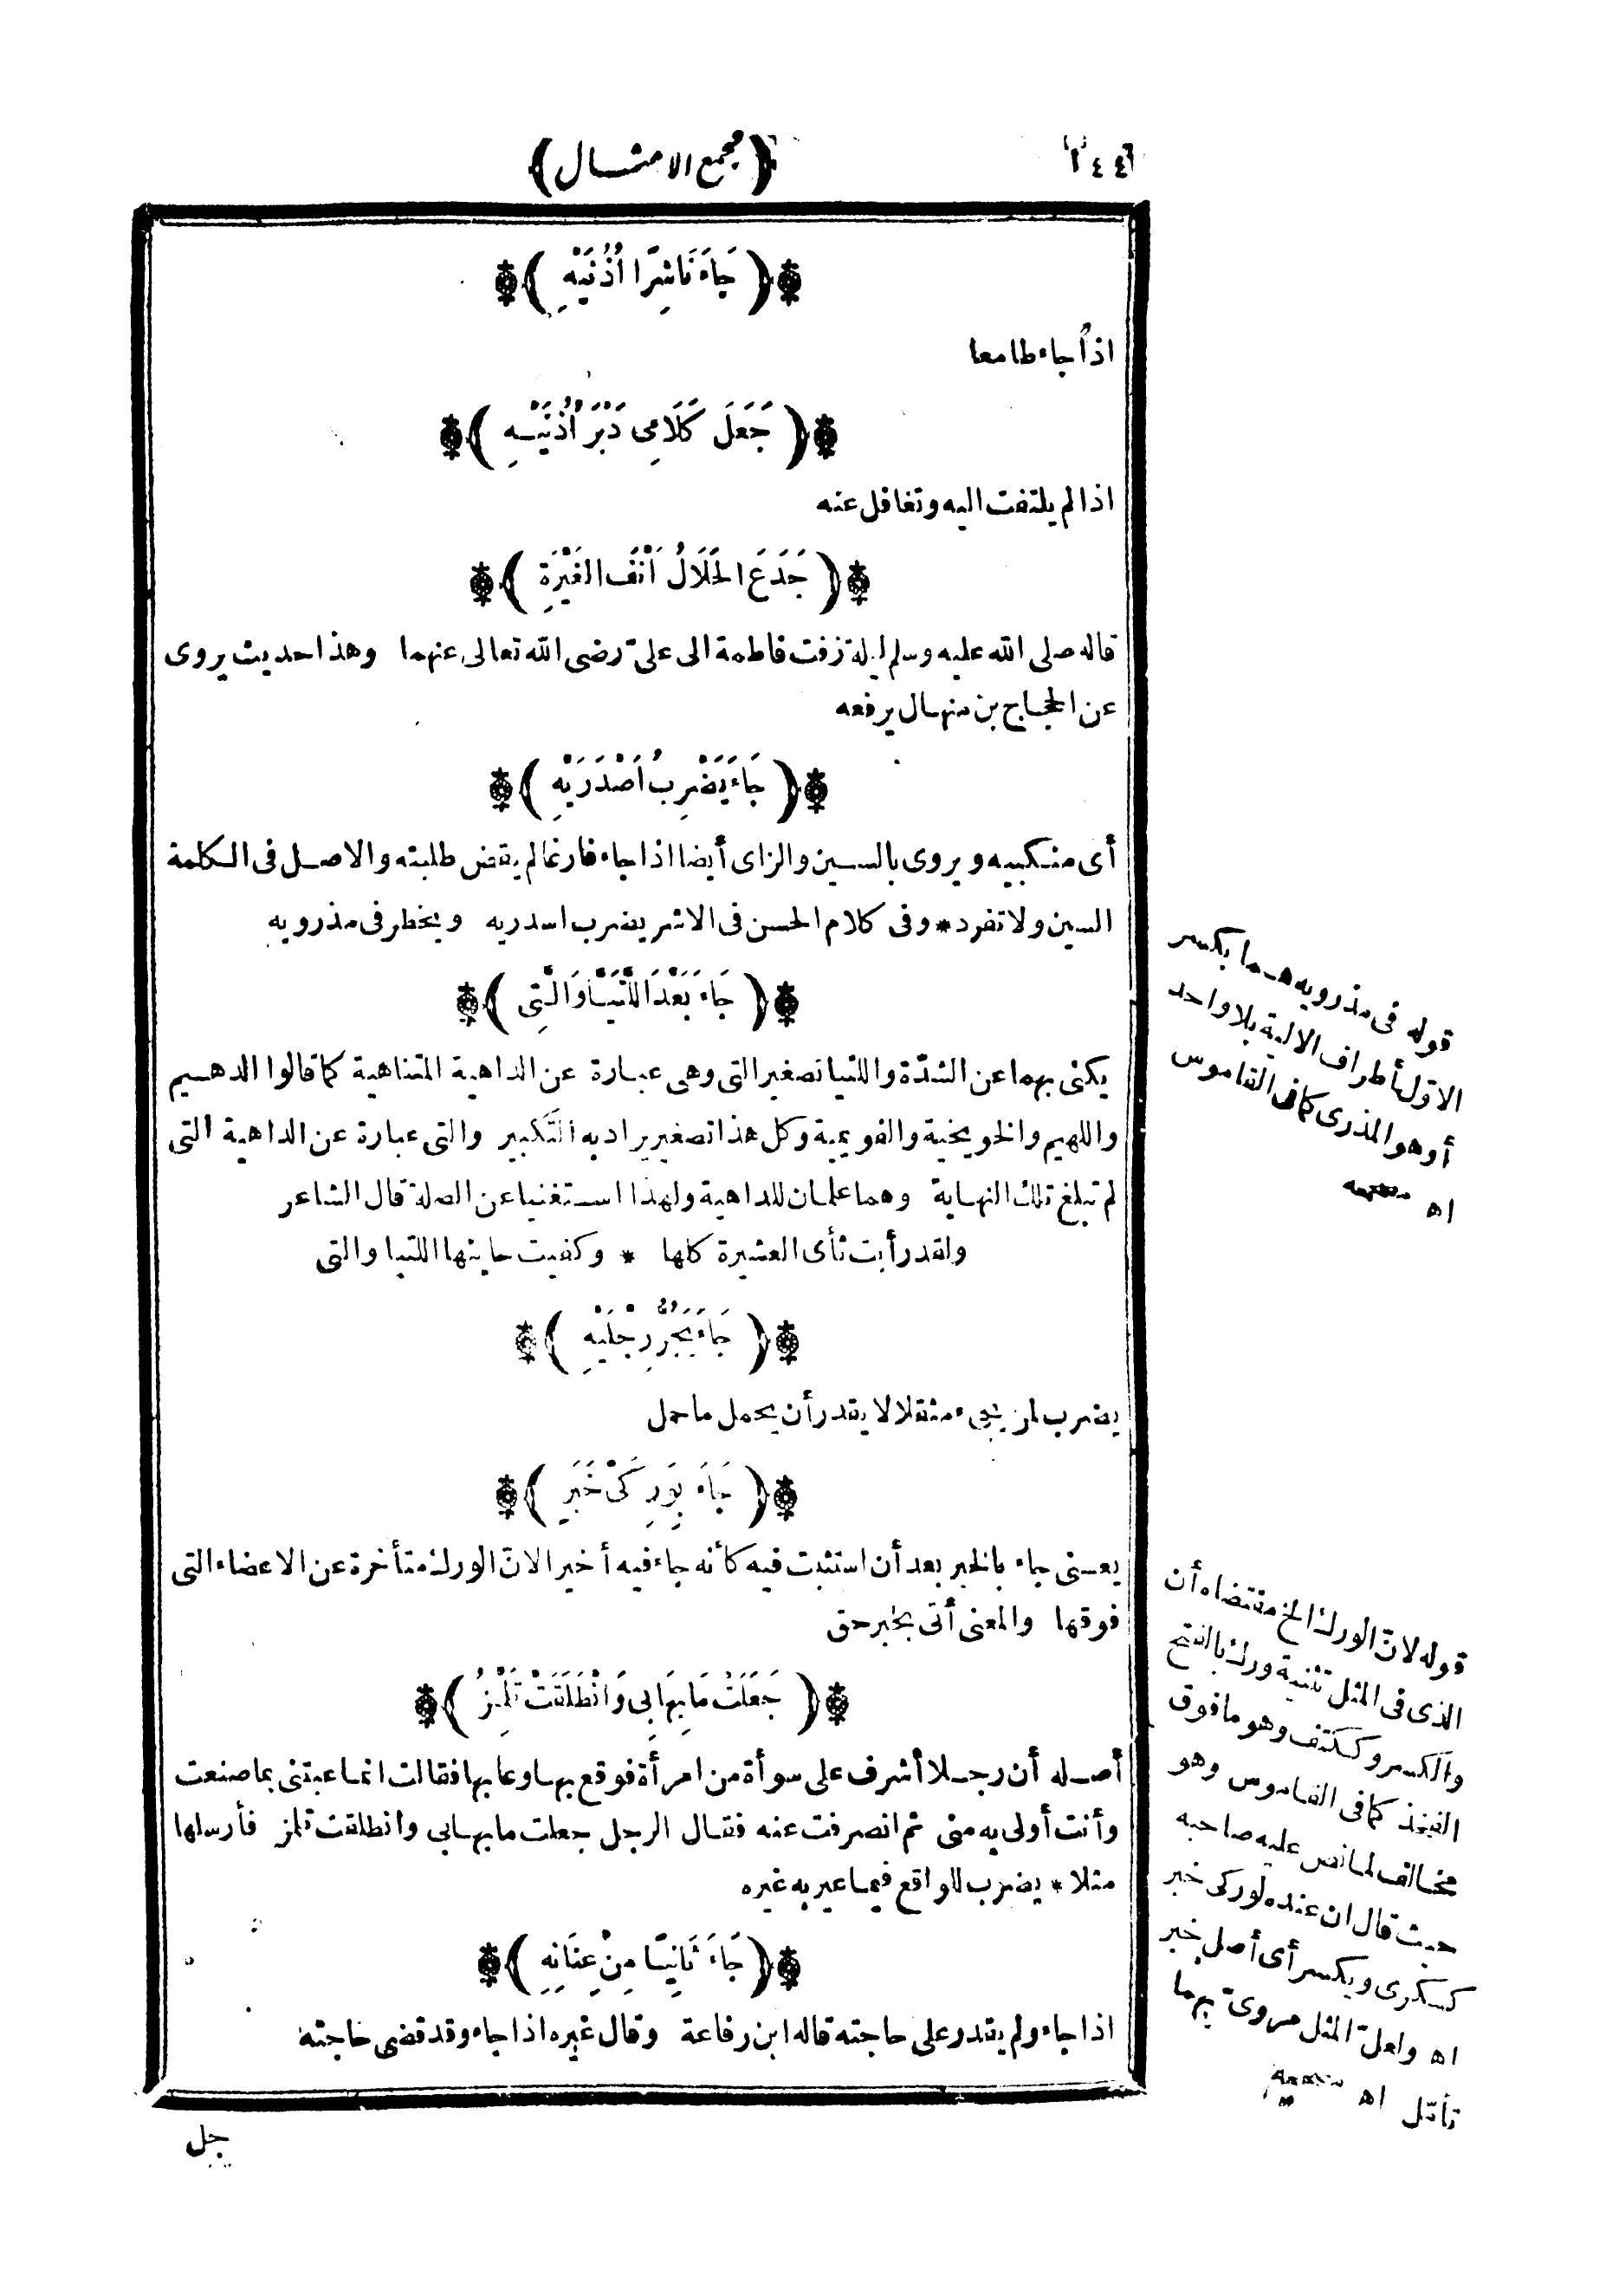 ١٤٤
﴿مجمع الامثال﴾
﴿جَاءَ نَاشِرًا أُذُنَيْهِ﴾
اذا جاء طامعا
﴿جَعَلَ كَلَامِى دَبْرَ أُذُنَيْهِ﴾
اذا لم يلتفت اليه وتغافل عنه
﴿جَدَعَ الحَلَالُ أَنْفَ الغَيْرَةِ﴾
قاله صلى الله عليه وسلم ليلة زفت فاطمة الى علىّ رضى الله تعالى عنهما وهذا حديث يروى
عن الحجاج بن منهال يرفعه
﴿جَاءَ يَضْرِبُ أَصْدَرَيْهِ﴾
أى منكبيه ويروى بالسين والزاى أيضا اذا جاء فارغا لم يقض طلبته والاصل فى الكلمة
السين ولا تفرد * وفى كلام الحسن فى الاشر يضرب اسدريه ويخطر فى مذرويه
﴿جَاءَ بَعْدَ اللَّتَيَّا وَالَّتِى﴾
يكنى بهما عن الشدّة واللتيا تصغير التى وهى عبارة عن الداهية المتناهية كما قالوا الدهيم
واللهيم والخويخية والفويمية وكل هذا تصغير يراد به التكبير والتى عبارة عن الداهية التى
لم تبلغ تلك النهاية وهما علمان للداهية ولهذا استغنيا عن الصلة قال الشاعر
ولقد رأيت ثأى العشيرة كلها * وكفيت جانيها اللتيا والتى
﴿جَاءَ يَجُرُّ رِجْلَيْهِ﴾
يضرب لمن يجىء مثقلا لا يقدر أن يحمل ما حمل
﴿جَاءَ بِوَرِكَىْ خَبَرٍ﴾
يعنى جاء بالخبر بعد أن استثبت فيه كأنه جاء فيه أخيرا لانّ الورك متأخرة عن الاعضاء التى
فوقها والمعنى أتى بخبر حق
﴿جَعَلَتْ مَا بِهَا بِى وَانْطَلَقَتْ تَلْمِزُ﴾
أصله أن رجلا أشرف على سوأة من امرأة فوقع بها وعابها فقالت انما عبتنى بما صنعت
وأنت أولى به منى ثم انصرفت عنه فقال الرجل جعلت ما بها بى وانطلقت تلمز فأرسلها
مثلا * يضرب للواقع فيما عير به غيره
﴿جَاءَ ثَانِيًا مِنْ عِنَانِهِ﴾
اذا جاء ولم يقدر على حاجته قاله ابن رفاعة وقال غيره اذا جاء وقد قضى حاجته
جل
قوله فى مذرويه هما بكسر
الاوّل أطراف الالية بلا واحد
أو هو المذرى كما فى القاموس
اه مصححه
قوله لانّ الورك الخ مقتضاه أن
الذى فى المثل تثنية ورك بالفتح
والكسر وككتف وهو ما فوق
الفخذ كما فى القاموس وهو
مخالف لما نص عليه صاحبه
حيث قال ان عنده لوركى خبر
كسكرى ويكسر أى أصل خبر
اه ولعلّ المثل مروىّ بهما
تأمّل اه مصححه